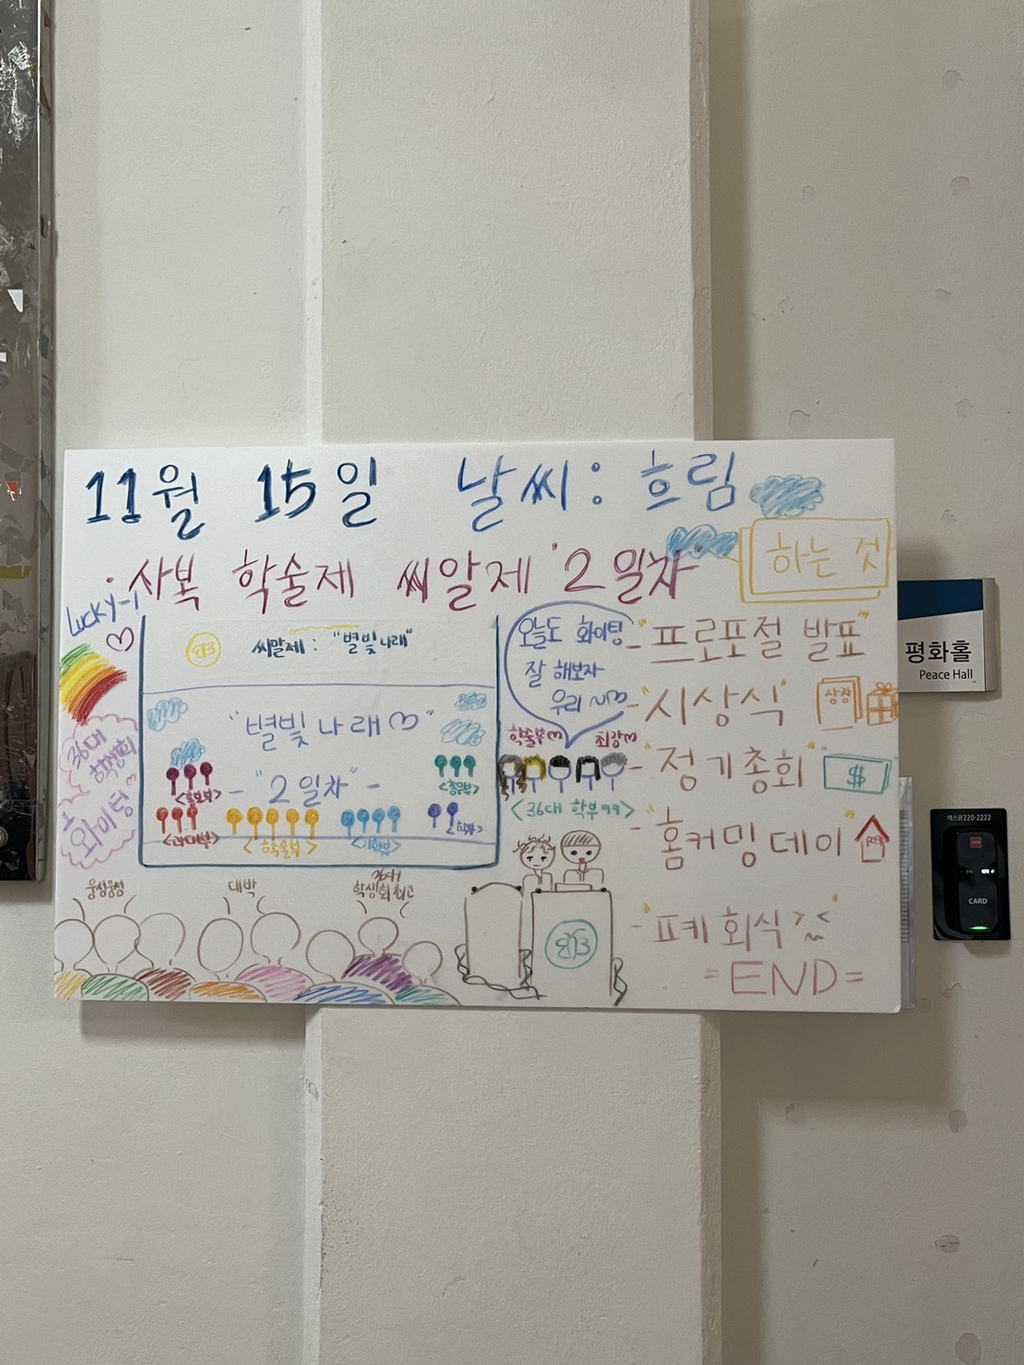 11월 15일 날씨: 흐림
사복 학술제 씨알제 "2일차"
하는 것
Lucky-!
씨알제 : "별빛나래"
"별빛나래♡"
- "2일차" -
<홍보부>
<총무부>
<학술부>
<기획부>
36대
학생회
화이팅
오늘도 화이팅
잘 해보자
우리
학술부♡ 최강♡
<36대 학부ㅋㅋ>
웅성웅성
대박
36대
학생회 최고
- "프로포절 발표"
- "시상식"
상장
- "정기총회"
$
- "홈커밍데이"
- "폐회식
=END=
평화홀
Peace Hall
에스원220-2222
CARD